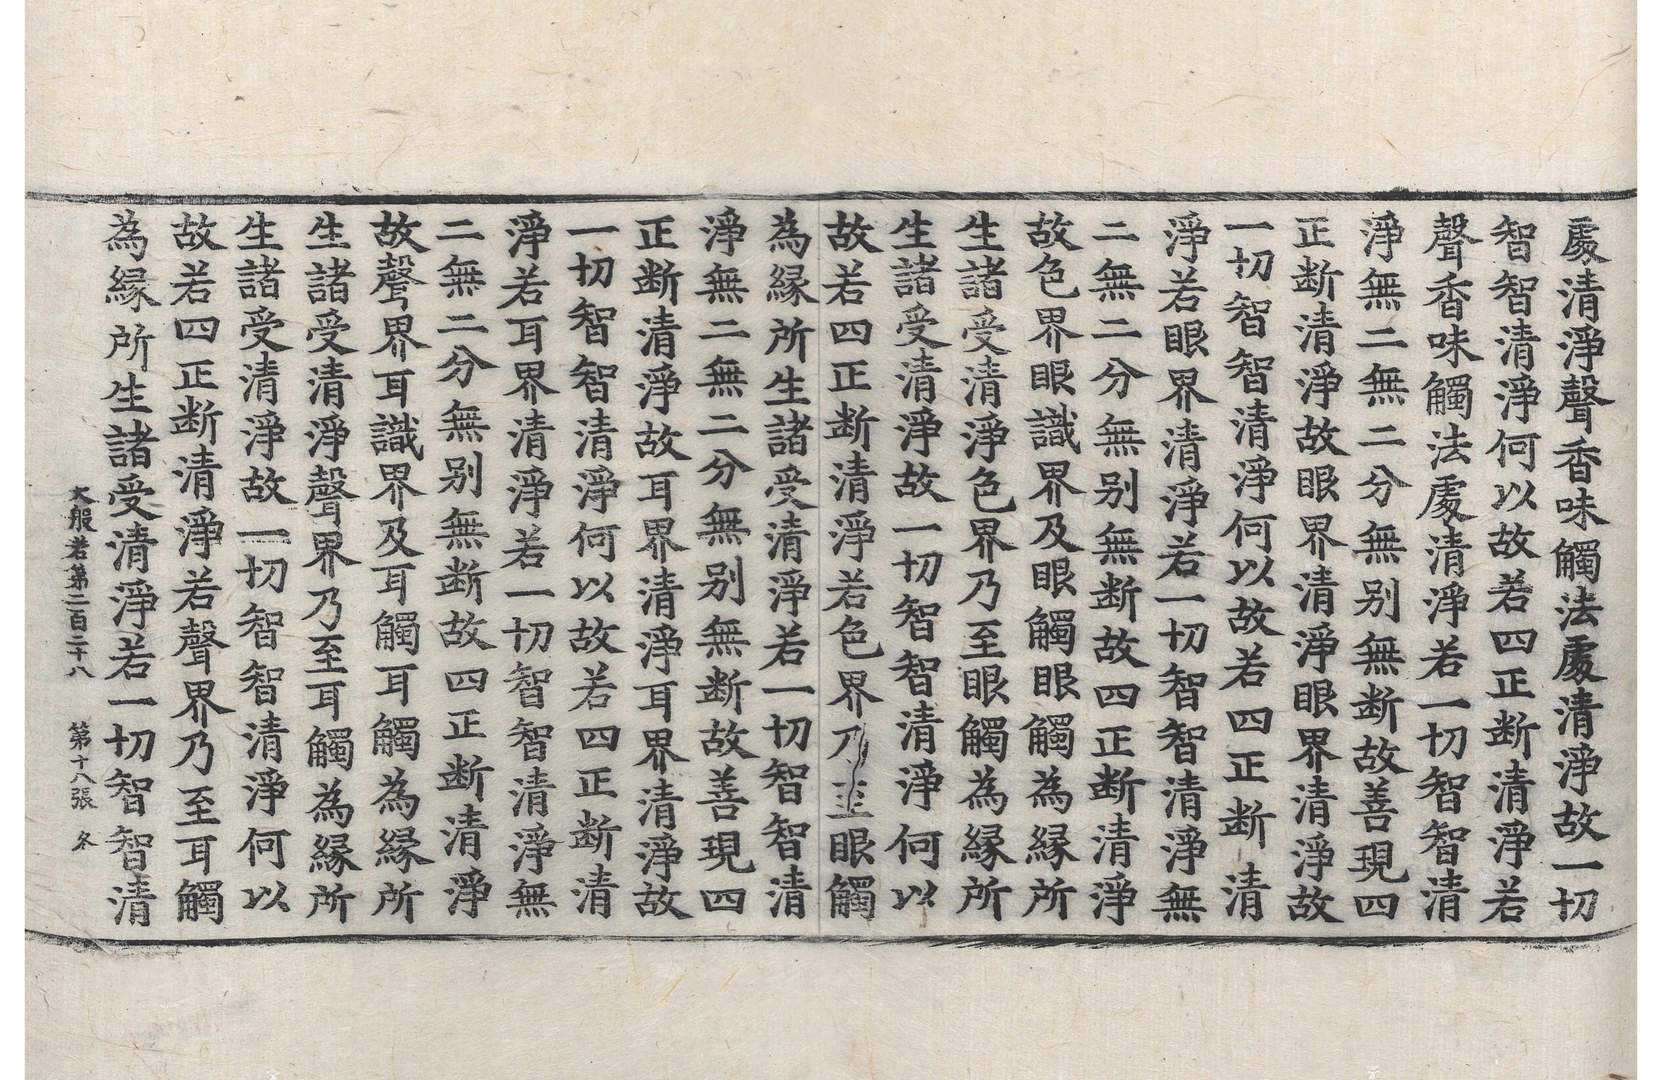 處清淨聲香味觸法處清淨故一切
智智清淨何以故若四正断清淨若
聲香味觸法處清淨若一切智智清
淨無二無二分無别無断故善現四
正断清淨故眼界清淨眼界清淨故
一切智智清淨何以故若四正断清
淨若眼界清淨若一切智智清淨無
二無二分無别無断故四正断清淨
故色界眼識界及眼觸眼觸為縁所
生諸受清淨色界乃至眼觸為縁所
生諸受清淨故一切智智清淨何以
故若四正断清淨若色界乃至眼觸
為縁所生諸受清淨若一切智智清
淨無二無二分無别無断故善現四
正断清淨故耳界清淨耳界清淨故
一切智智清淨何以故若四正断清
淨若耳界清淨若一切智智清淨無
二無二分無别無断故四正断清淨
故聲界耳識界及耳觸耳觸為縁所
生諸受清淨聲界乃至耳觸為縁所
生諸受清淨故一切智智清淨何以
故若四正断清淨若聲界乃至耳觸
為縁所生諸受清淨若一切智智清
大般若第二百二十八　第十八張　冬